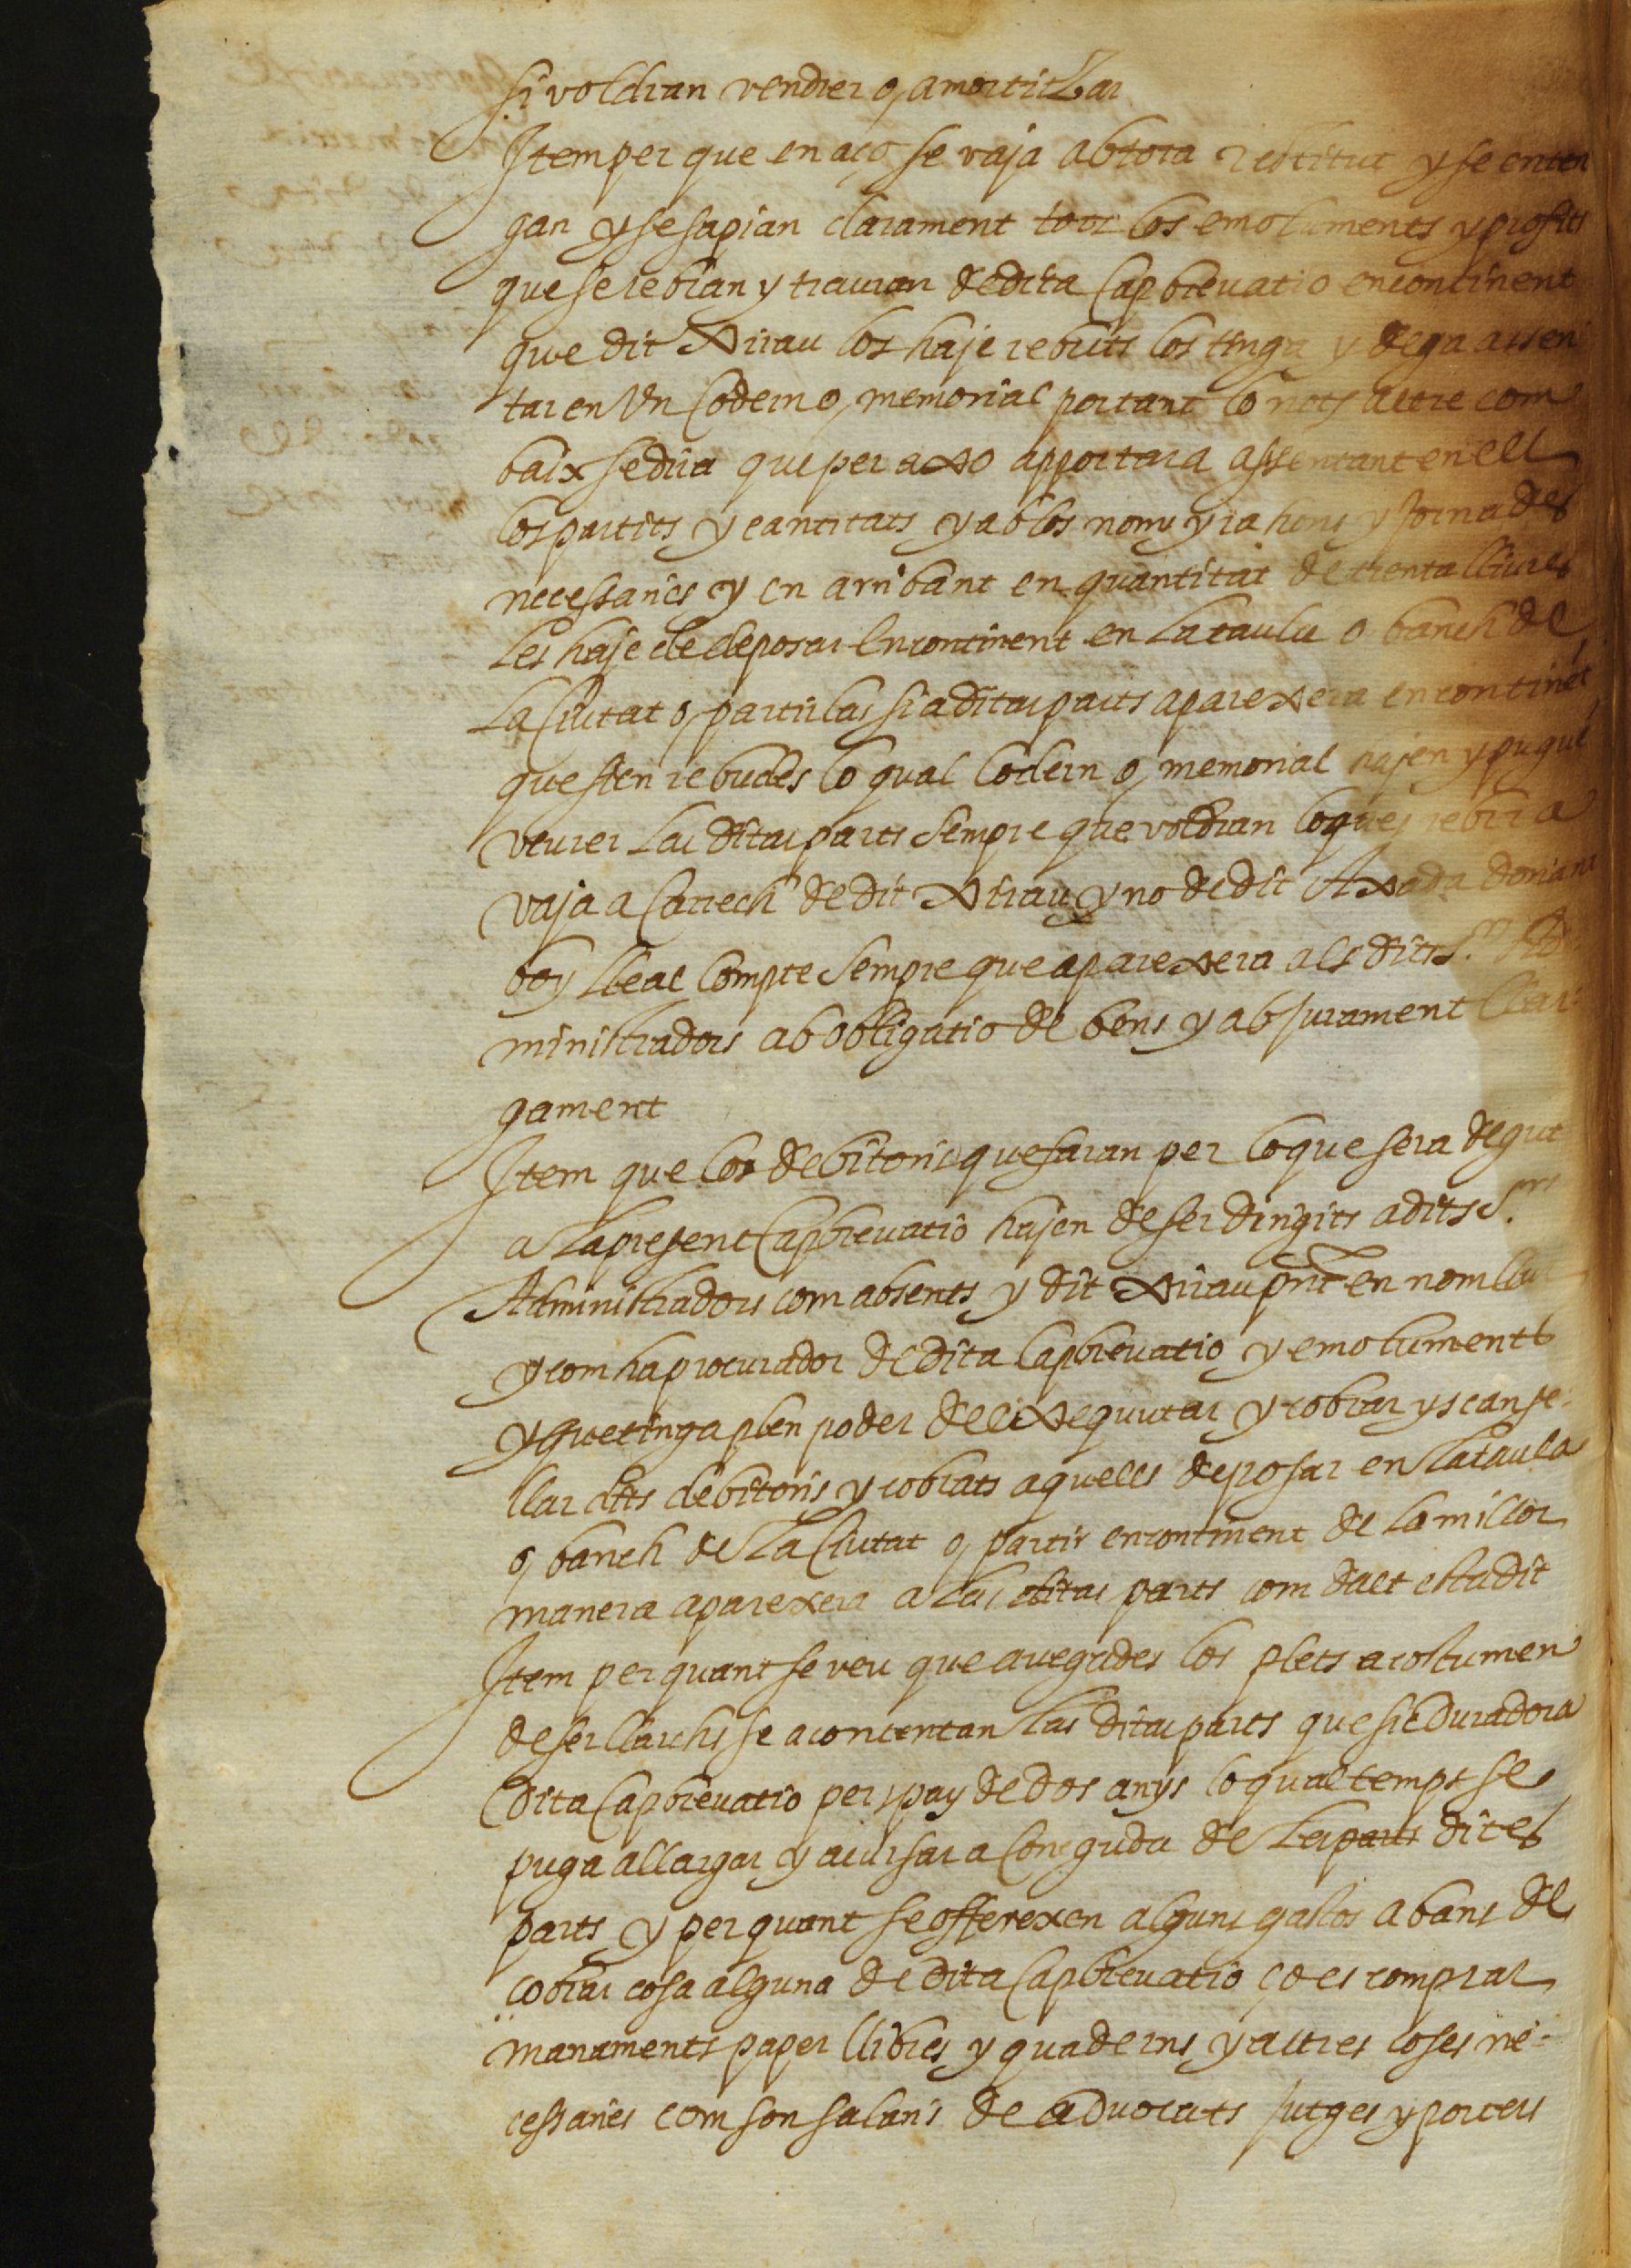 si voldran vendrer o, amortitzar
Item per que en aço se vaja ab tota rectitut y se enten
gan y se sapian clarament tots los emoluments y profits
que se rebran y trauran de dita Capbrevatio encontinent
que dit Xirau los haje rebuts los tinga y dega assen
tar en Un Codern o, memorial portant lo nots altre com
baix se dira que per axo apportara assentant en ell
los partits y cantitats y ab los noms y rahons y jornades
necessaries y en arribant en quantitat de trenta lliures
les haje de deposar encontinent en la taula o banch de
la Ciutat o, partirlas si a ditas parts apareixera encontinet
que sien rebudes lo qual Codern o, memorial hajen y pugue
veurer las ditas parts sempre que voldran lo ques rebra
vaja a Carrech de dit Xirau y no de dit Axada donant
bo y lleal Compte sempre que aparexera als dits S.rs Ad
ministradors ab obligatio de bens y ab jurament llar
gament
Item que los debitoris que faran per lo que sera degut
a la present Capbrevatio hajen de ser dirigits a dits S.rs
Administradors com absents y dit Xirau pnt en nom lur
y com ha procurador de dita Capbrevatio y emoluments
y que tinga plen poder de exequutar y cobrar y scanse-
llar dits debitoris y cobrats aquells deposar en la taula
o, banch de la Ciutat o, partir encontinent de la millor
manera aparexera a las ditas parts com dalt esta dit
Item per quant se veu que a vegades los plets acostumen
de ser llarchs se acontentan las ditas parts que sie duradora
dita Capbrevatio per spay de dos anys lo qual temps se
puga allargar y acursar a Coneguda de les parts dites
parts y per quant se offerexen alguns gastos abans de
cobrar cosa alguna de dita Capbrevatio ço es comprar
manaments paper llibres y quaderns y altres coses ne-
cessaries com son salaris de advocats jutges y porters